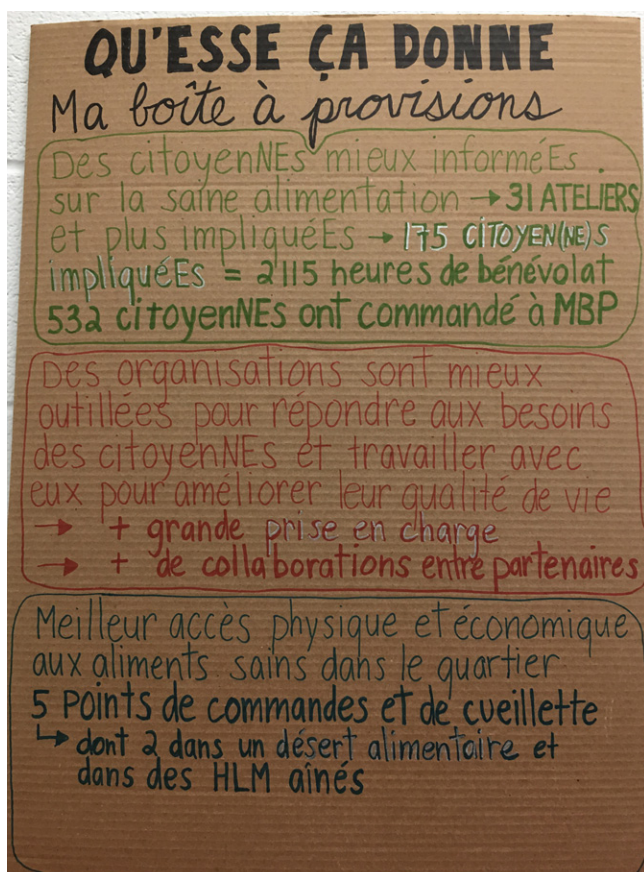 QU'ESSE ÇA DONNE
Ma boîte à provisions
Des citoyenNEs mieux informéEs.
sur la saine alimentation → 31 ATELIERS
et plus impliquéEs → 175 CITOYEN(NE)S
impliquéEs = 2115 heures de bénévolat
532 citoyenNEs ont commandé à MBP
Des organisations sont mieux
outillées pour répondre aux besoins
des citoyenNEs et travailler avec
eux pour améliorer leur qualité de vie
→ + grande prise en charge
→ + de collaborations entre partenaires
Meilleur accès physique et économique
aux aliments sains dans le quartier
5 Points de commandes et de cueillette
↳ dont 2 dans un désert alimentaire et
dans des HLM aînés